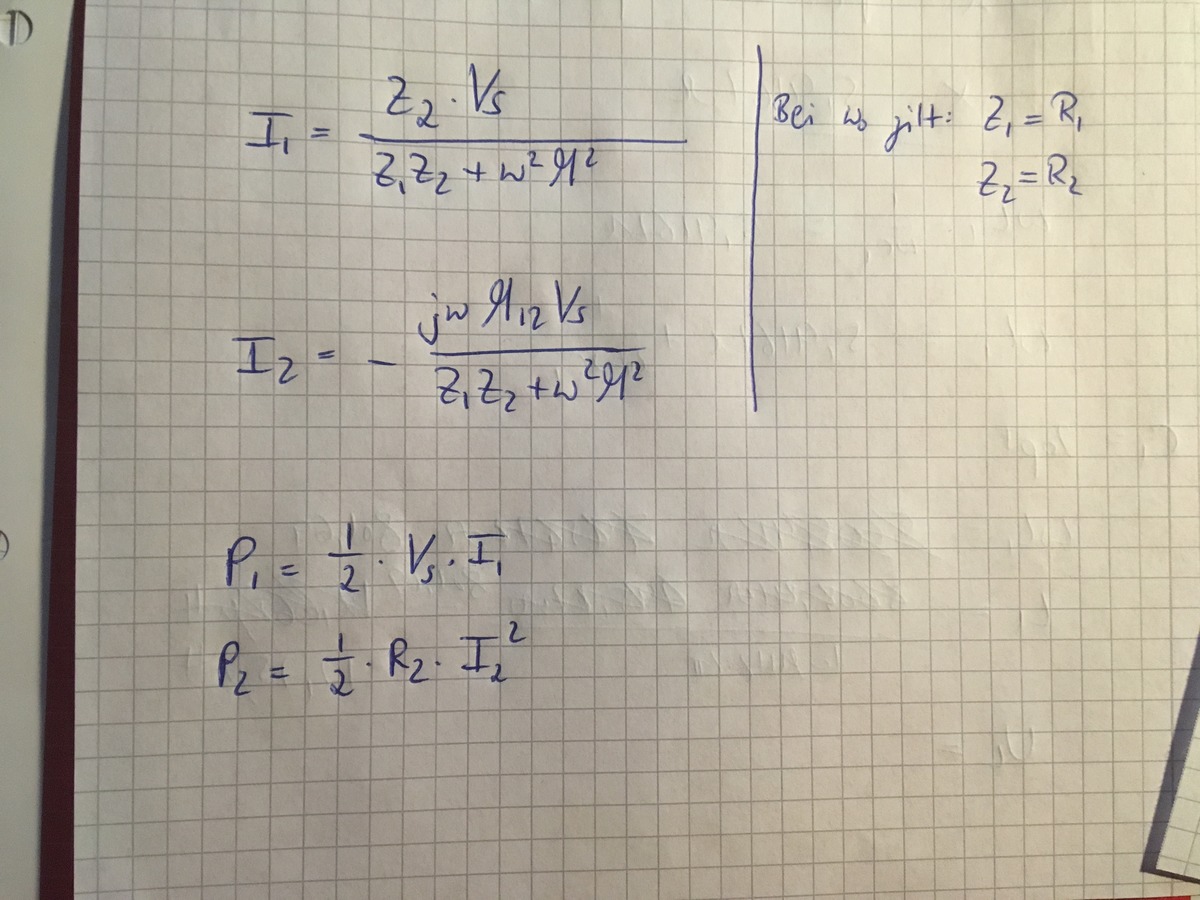 I₁ = Z₂ · Vs / (Z₁Z₂ + ω²M²)
Bei ω₀ gilt: Z₁ = R₁
Z₂ = R₂
I₂ = - jωM₁₂Vs / (Z₁Z₂ + ω²M²)
P₁ = 1/2 · Vs · I₁
P₂ = 1/2 · R₂ · I₂²